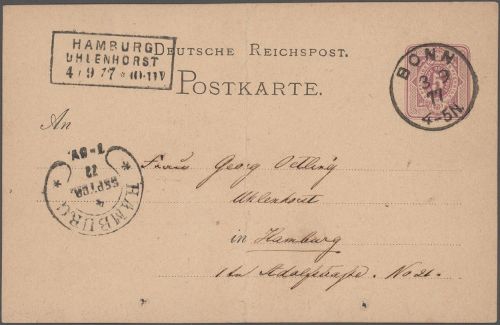 HAMBURG
UHLENHORST
4 9 77 10-11V
DEUTSCHE REICHSPOST.
POSTKARTE.
BONN
3 9
77
4-5N.
An
HAMBURG
4
SEPTBR.
77
Frau Georg Oetling
Uhlenhorst
in Hamburg
1te Adolfstraße No